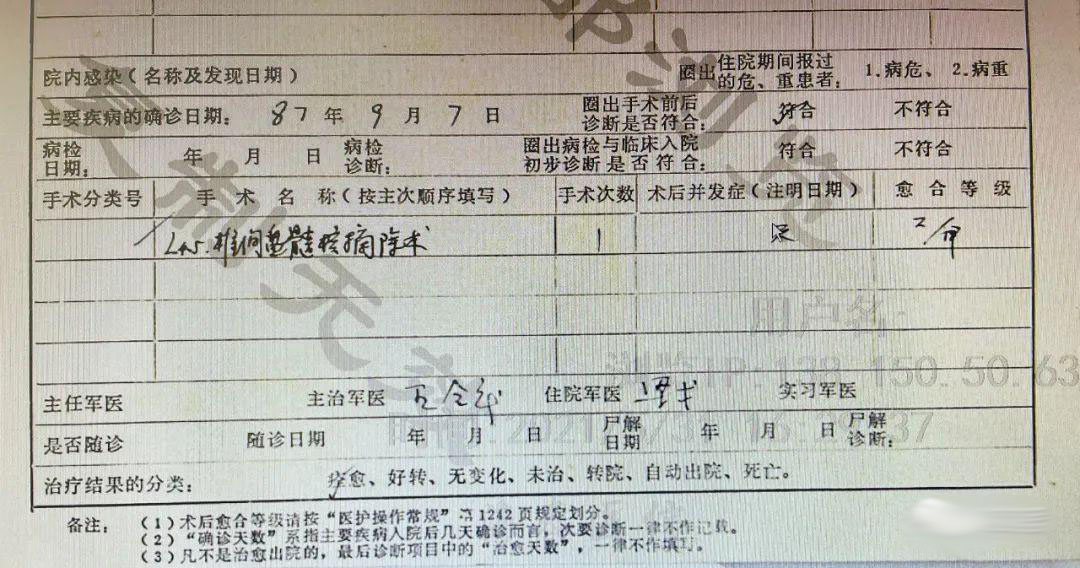 院内感染（名称及发现日期） 圈出住院期间报过的危、重患者： 1.病危、 2.病重
主要疾病的确诊日期： 87年9月7日 圈出手术前后诊断是否符合： 符合 不符合
病检日期： 年 月 日 病检诊断： 圈出病检与临床入院初步诊断是否符合： 符合 不符合
手术分类号 手术名称（按主次顺序填写） 手术次数 术后并发症（注明日期） 愈合等级
椎间盘髓核摘除术 1
主任军医 主治军医 住院军医 实习军医
是否随诊 随诊日期 年 月 日 尸解日期 年 月 日 尸解诊断：
治疗结果的分类： 痊愈、好转、无变化、未治、转院、自动出院、死亡。
备注：（1）术后愈合等级请按“医护操作常规”第1242页规定划分。
（2）“确诊天数”系指主要疾病入院后几天确诊而言，次要诊断一律不作记载。
（3）凡不是治愈出院的，最后诊断项目中的“治愈天数”，一律不作填写。
复制无效
用户名：
浏览IP:138.150.50.63